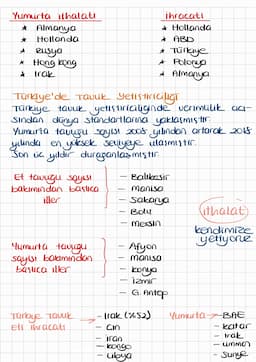 Yumurta ithalatı
★ Almanya
★ Hollanda
★ Rusya
★ Hong kong
★ Irak
ihracatı
★ Hollanda
★ ABD
★ Türkiye
★ Polonya
★ Almanya
Türkiye'de Tavuk Yetiştiriciliği
Türkiye tavuk yetiştiriciliğinde verimlilik açı-
sından dünya standartlarına yaklaşmıştır.
Yumurta tavuğu sayısı 2008 yılından artarak 2018
yılında en yüksek seviyeye ulaşmıştır.
Son üç yıldır durağanlaşmıştır.
Et tavuğu sayısı
bakımından başlıca
iller
– Balıkesir
– manisa
– Sakarya
– Bolu
– mersin
ithalat
kendimize
yetiyoruz
Yumurta tavuğu
sayısı bakımından
başlıca iller
– Afyon
– manisa
– konya
– izmir
– G. Antep
Türkiye Tavuk
Eti ihracatı
– Irak (%52)
– Çin
– İran
– kongo
– Libya
Yumurta → – BAE
– katar
– Irak
– umman
– Suriye